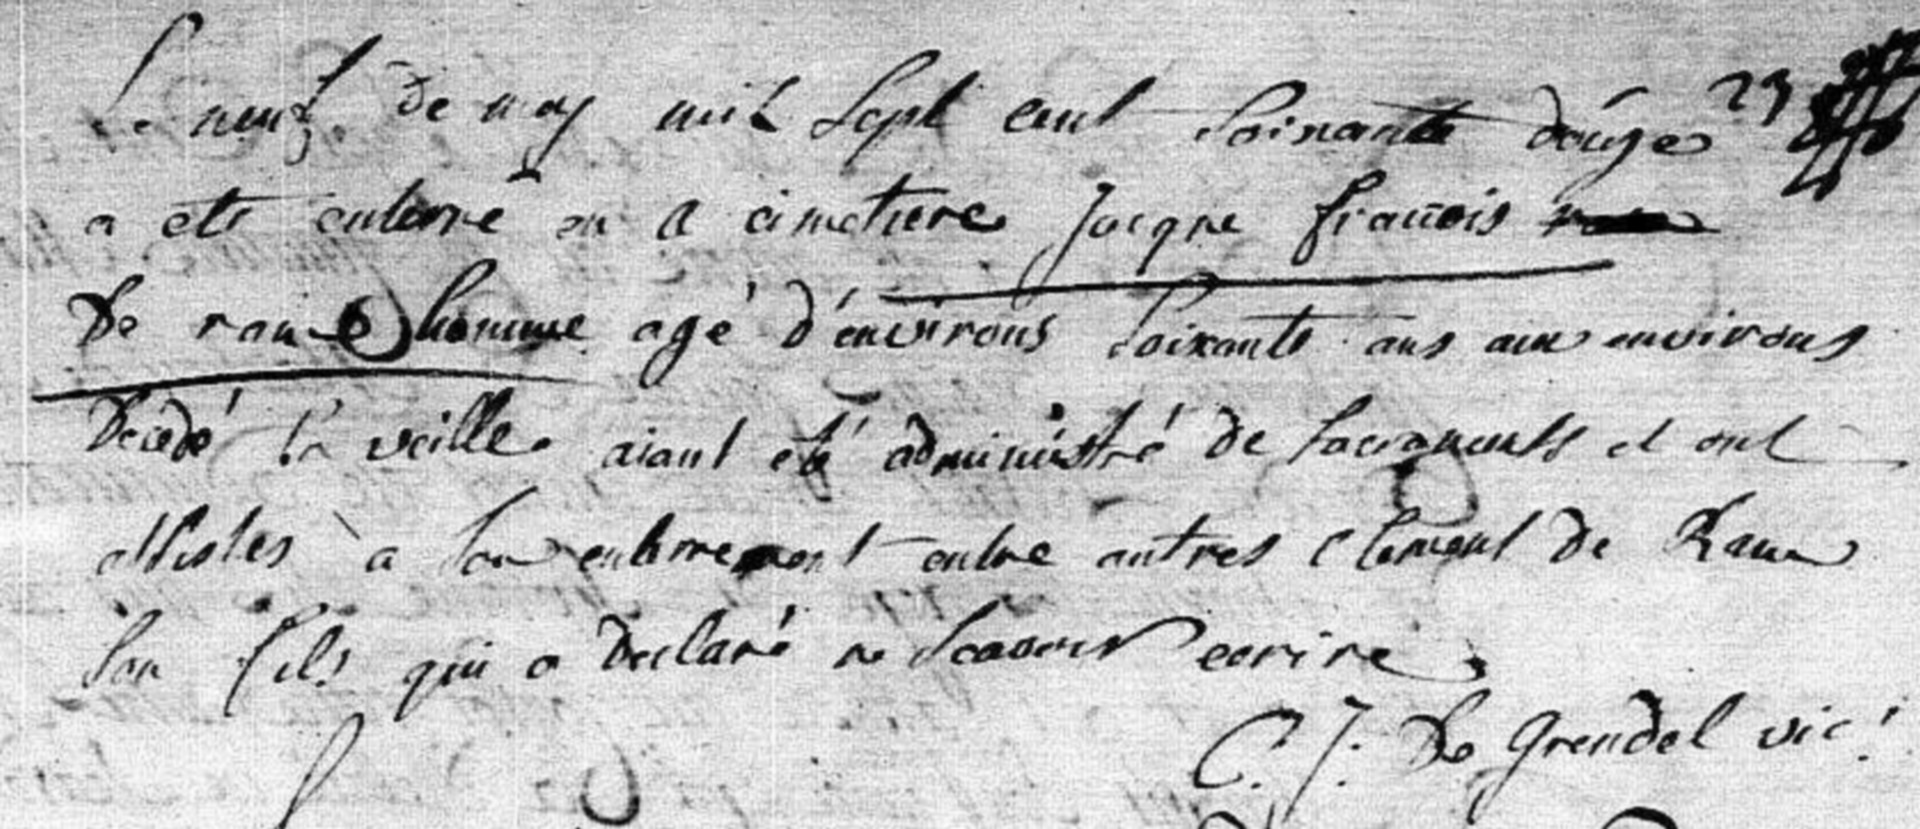 Le neuf de may mil Sept cent Soixante douze 29
a eté enterré en a cimetiere Jacque francois
De rame homme agé d'environs Soixante ans aux environs
Decedé la veille aiant eté administré de Sacraments et ont
assistes à Son enterrement entre autres Clement de Rame
Son fils qui a declaré ne Scavoir ecrire
C. J. De Grendel vic: